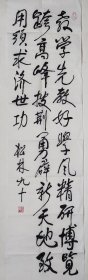 教学先教好学风精研博览
跨高峰披荆勇辟新天地致
用须求济世功 松林九十